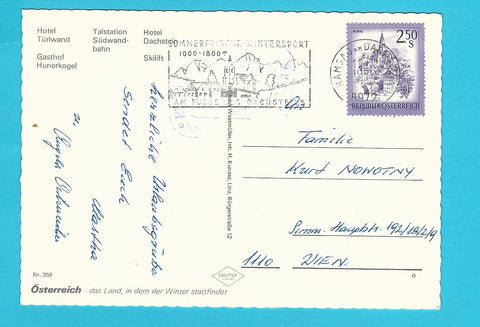 Hotel
Türlwand
Gasthof
Hunerkogel
Talstation
Südwand-
bahn
Hotel
Dachstein
Skilift
SOMMERFRISCHE-WINTERSPORT
1000-1800m
AM FUSSE DES DACHSTEINS
RAMSAU AM DACHSTEIN
8972
2.50
S
REPUBLIK ÖSTERREICH
Herzliche Urlaubsgrüße
sendet Euch
Martha
u.
An
Familie
Kurd NOWOTNY
Simm. Hauptstr. 192/18/2/9
1110 WIEN.
Westmüller, Inh. H. Kunaac, Linz, Bürgerstraße 12
Nr. 359
Österreich - das Land, in dem der Winter stattfindet